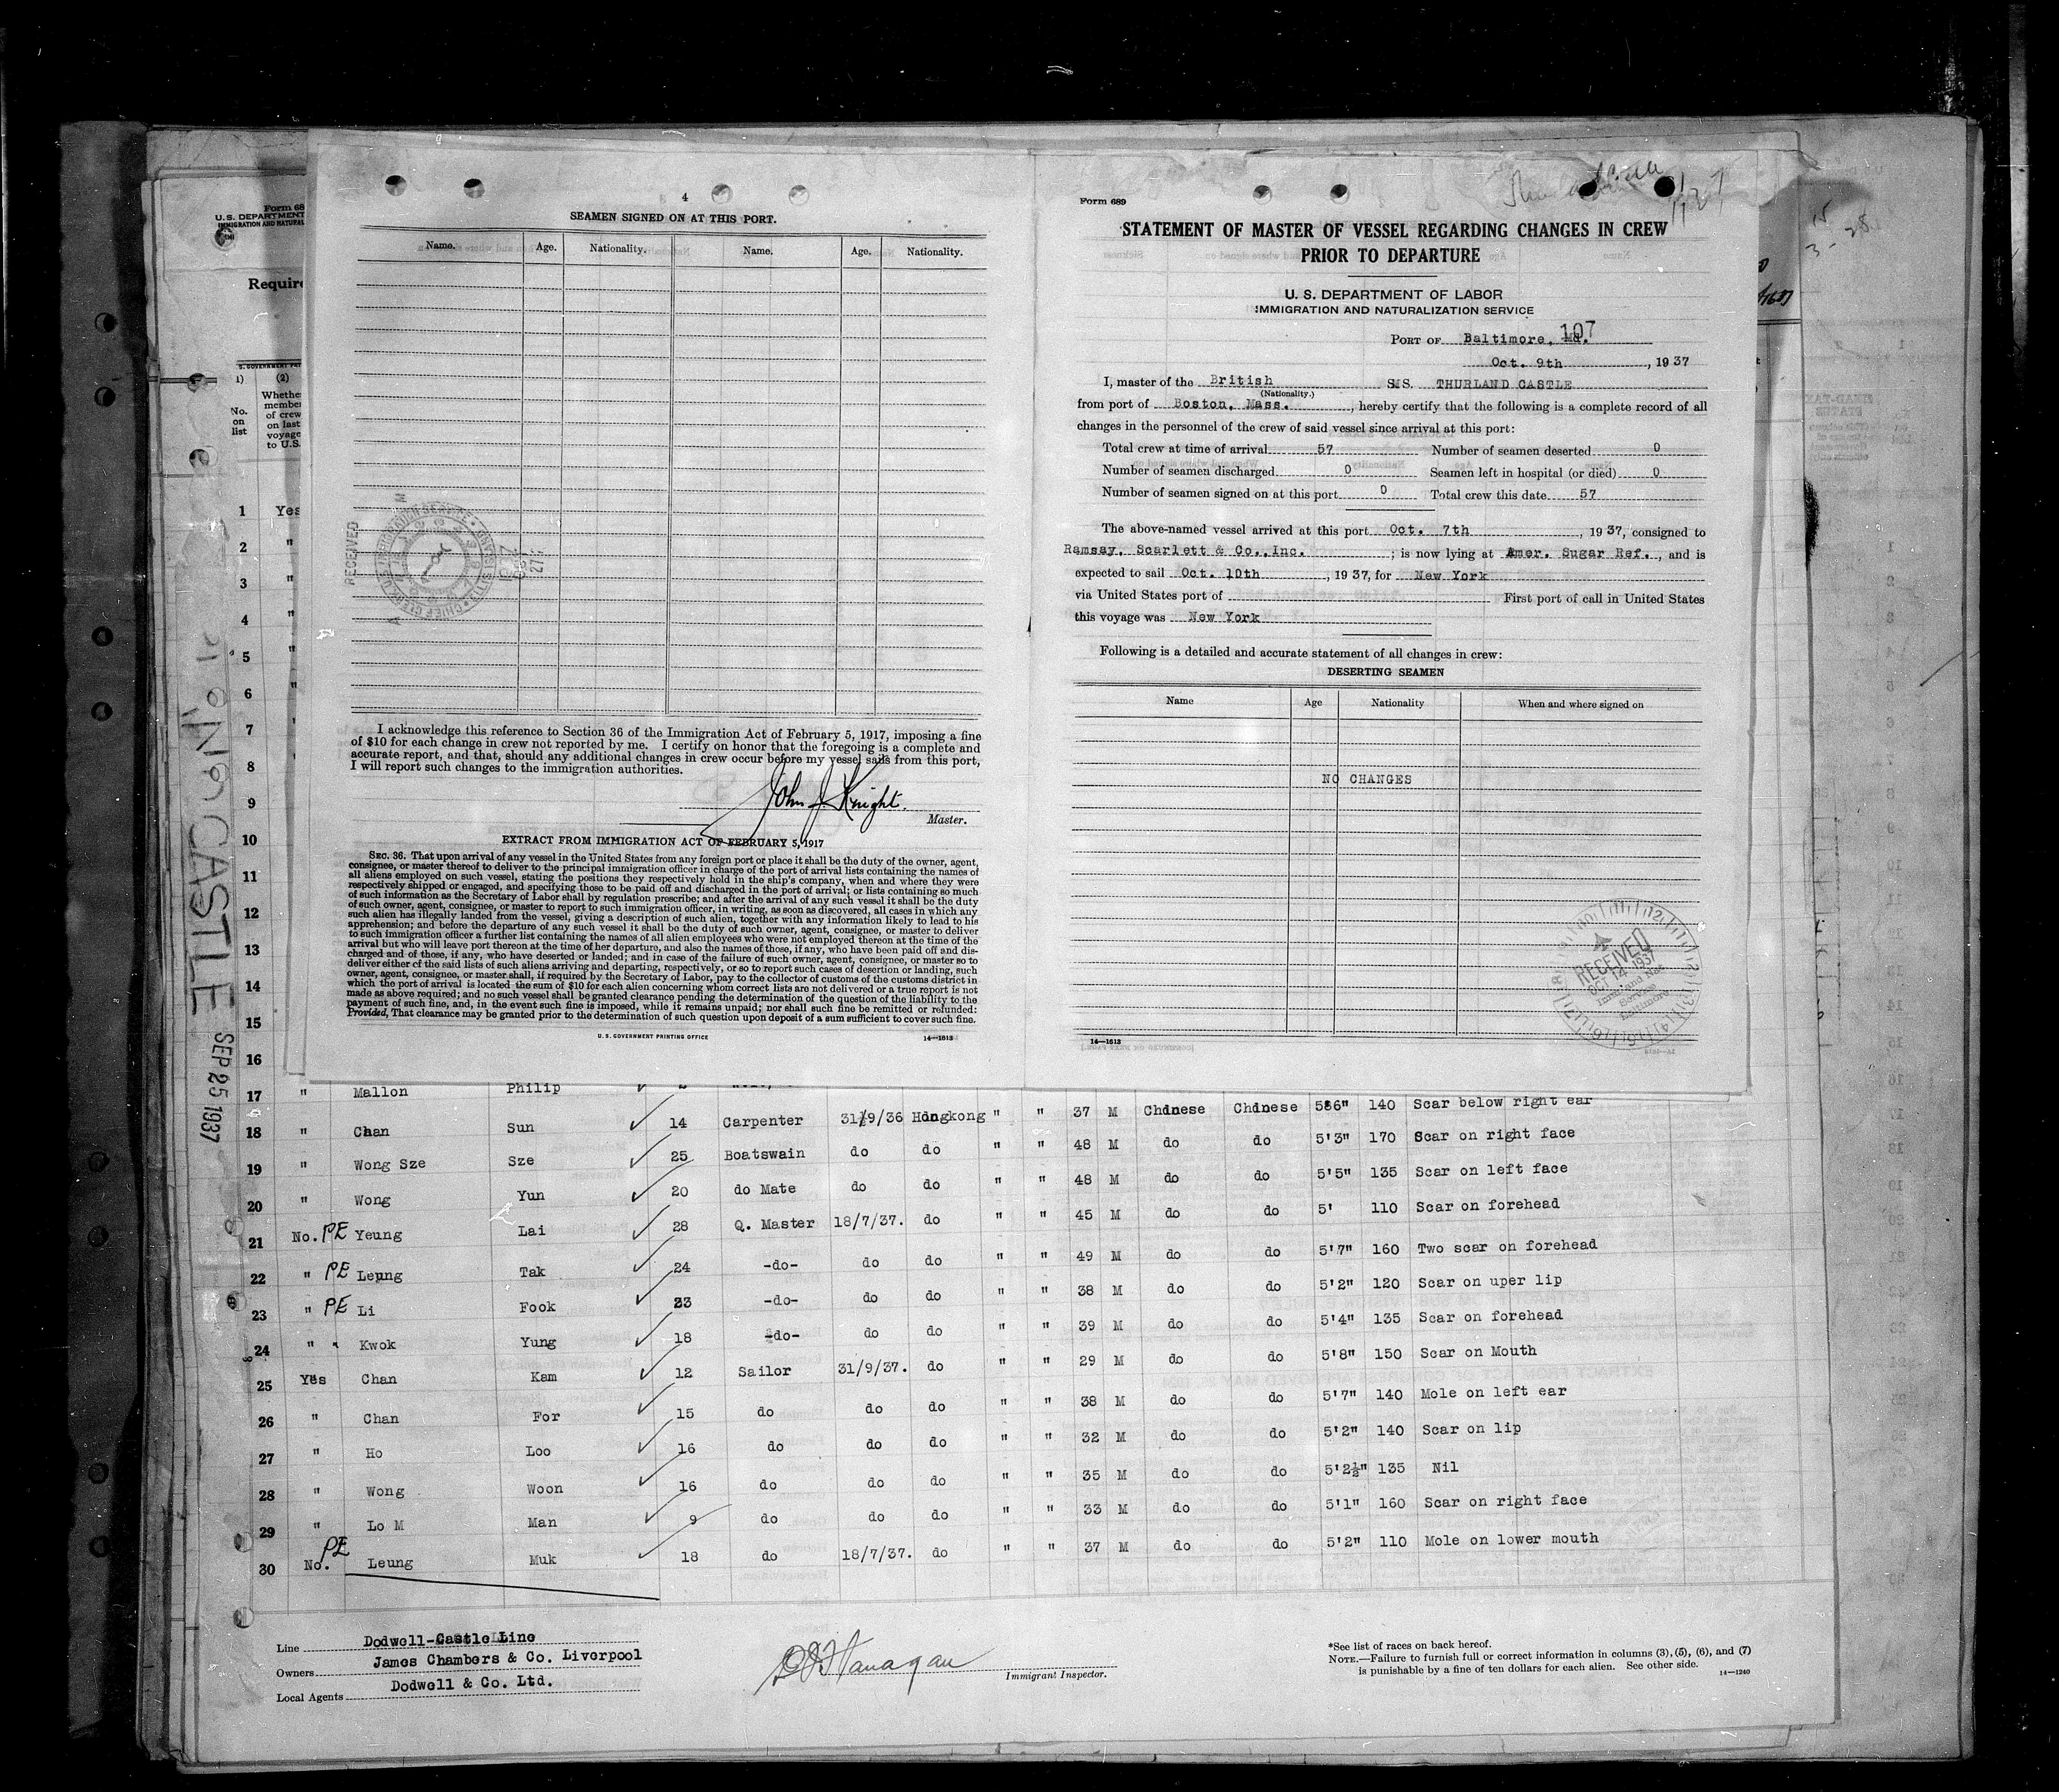 4
SEAMEN SIGNED ON AT THIS PORT.
Name. Age. Nationality. Name. Age. Nationality.
I acknowledge this reference to Section 36 of the Immigration Act of February 5, 1917, imposing a fine
of $10 for each change in crew not reported by me. I certify on honor that the foregoing is a complete and
accurate report, and that, should any additional changes in crew occur before my vessel sails from this port,
I will report such changes to the immigration authorities.
John J. Knight.
Master.
EXTRACT FROM IMMIGRATION ACT OF FEBRUARY 5, 1917
SEC. 36. That upon arrival of any vessel in the United States from any foreign port or place it shall be the duty of the owner, agent,
consignee, or master thereof to deliver to the principal immigration officer in charge of the port of arrival lists containing the names of
all aliens employed on such vessel, stating the positions they respectively hold in the ship's company, when and where they were
respectively shipped or engaged, and specifying those to be paid off and discharged in the port of arrival; or lists containing so much
of such information as the Secretary of Labor shall by regulation prescribe; and after the arrival of any such vessel it shall be the duty
of such owner, agent, consignee, or master to report to such immigration officer, in writing, as soon as discovered, all cases in which any
such alien has illegally landed from the vessel, giving a description of such alien, together with any information likely to lead to his
apprehension; and before the departure of any such vessel it shall be the duty of such owner, agent, consignee, or master to deliver
to such immigration officer a further list containing the names of all alien employees who were not employed thereon at the time of the
arrival but who will leave port thereon at the time of her departure, and also the names of those, if any, who have been paid off and dis-
charged and of those, if any, who have deserted or landed; and in case of the failure of such owner, agent, consignee, or master so to
deliver either of the said lists of such aliens arriving and departing, respectively, or so to report such cases of desertion or landing, such
owner, agent, consignee, or master shall, if required by the Secretary of Labor, pay to the collector of customs of the customs district in
which the port of arrival is located the sum of $10 for each alien concerning whom correct lists are not delivered or a true report is not
made as above required; and no such vessel shall be granted clearance pending the determination of the question of the liability to the
payment of such fine, and, in the event such fine is imposed, while it remains unpaid; nor shall such fine be remitted or refunded:
Provided, That clearance may be granted prior to the determination of such question upon deposit of a sum sufficient to cover such fine.
U. S. GOVERNMENT PRINTING OFFICE 14—1613
RECEIVED
Form 689
STATEMENT OF MASTER OF VESSEL REGARDING CHANGES IN CREW
PRIOR TO DEPARTURE
U. S. DEPARTMENT OF LABOR
IMMIGRATION AND NATURALIZATION SERVICE
107
PORT OF Baltimore, Md.
Oct. 9th, 1937
I, master of the British S.S. THURLAND CASTLE
(Nationality.)
from port of Boston, Mass., hereby certify that the following is a complete record of all
changes in the personnel of the crew of said vessel since arrival at this port:
Total crew at time of arrival 57 Number of seamen deserted 0
Number of seamen discharged 0 Seamen left in hospital (or died) 0
Number of seamen signed on at this port 0 Total crew this date 57
The above-named vessel arrived at this port Oct. 7th, 1937, consigned to
Ramsay, Scarlett & Co.,Inc.; is now lying at Amer. Sugar Ref., and is
expected to sail Oct. 10th, 1937, for New York
via United States port of First port of call in United States
this voyage was New York
Following is a detailed and accurate statement of all changes in crew:
DESERTING SEAMEN
Name Age Nationality When and where signed on
NO CHANGES
RECEIVED
OCT 14 1937
14—1613
Form 68
U.S. DEPARTMENT
IMMIGRATION AND NATURAL
Require
(1) (2)
No. on list
Whether member of crew on last voyage to U.S.
1 Yes
2 "
3 "
4 "
5 "
6 "
7
8
9
10
11
12
13
14
15
16
CASTLE SEP 25 1937
17 " Mallon Philip
37 M Chinese Chinese 5'6" 140 Scar below right ear
18 " Chan Sun 14 Carpenter 31/9/36 Hongkong " "
48 M do do 5'3" 170 Scar on right face
19 " Wong Sze Sze 25 Boatswain do do " "
48 M do do 5'5" 135 Scar on left face
20 " Wong Yun 20 do Mate do do " "
45 M do do 5' 110 Scar on forehead
21 No. PE Yeung Lai 28 Q. Master 18/7/37. do " "
49 M do do 5'7" 160 Two scar on forehead
22 " PE Leung Tak 24 -do- do do " "
38 M do do 5'2" 120 Scar on uper lip
23 " PE Li Fook 23 -do- do do " "
39 M do do 5'4" 135 Scar on forehead
24 " " Kwok Yung 18 -do- do do " "
29 M do do 5'8" 150 Scar on Mouth
25 Yes Chan Kam 12 Sailor 31/9/37. do " "
38 M do do 5'7" 140 Mole on left ear
26 " Chan For 15 do do do " "
32 M do do 5'2" 140 Scar on lip
27 " Ho Loo 16 do do do " "
35 M do do 5'2½" 135 Nil
28 " Wong Woon 16 do do do " "
33 M do do 5'1" 160 Scar on right face
29 " Lo M Man 9 do do do " "
37 M do do 5'2" 110 Mole on lower mouth
30 No. PE Leung Muk 18 do 18/7/37. do " "
Line Dodwell-Castle Line
Owners James Chambers & Co. Liverpool
Local Agents Dodwell & Co. Ltd.
Immigrant Inspector.
*See list of races on back hereof.
NOTE.—Failure to furnish full or correct information in columns (3), (5), (6), and (7)
is punishable by a fine of ten dollars for each alien. See other side. 14—1240